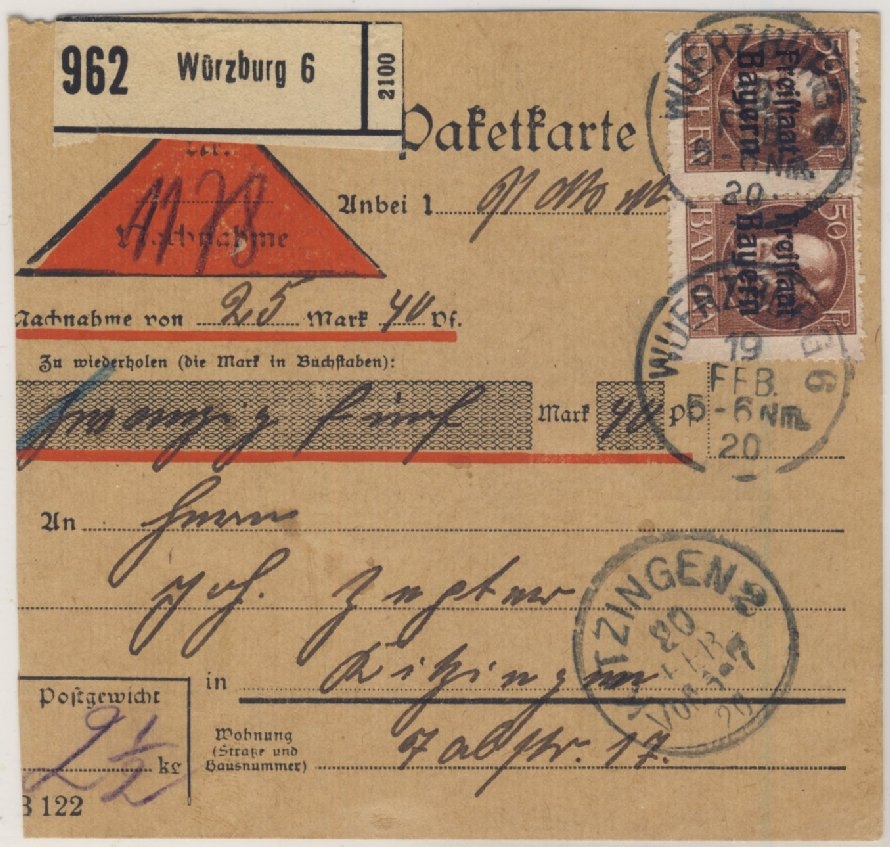 962 Würzburg 6 2100
Paketkarte
Nr. 4178
Nachnahme
Anbei 1
Nachnahme von 25 Mark 40 Pf.
Zu wiederholen (die Mark in Buchstaben):
zwanzig fünf Mark 40 Pf
An Herrn
Joh.
in Kitzingen
Postgewicht
2½ kg
Wohnung
(Straße und
Hausnummer)
str. 17.
B 122
50 Pf
Freistaat
Bayern
BAYERN
50 Pf
Freistaat
Bayern
BAYERN
WUERZBURG 6
20
WUERZBURG 6
19
FEB.
5-6 NM
20
KITZINGEN 2
20
FEB
VOR. 6-7
20